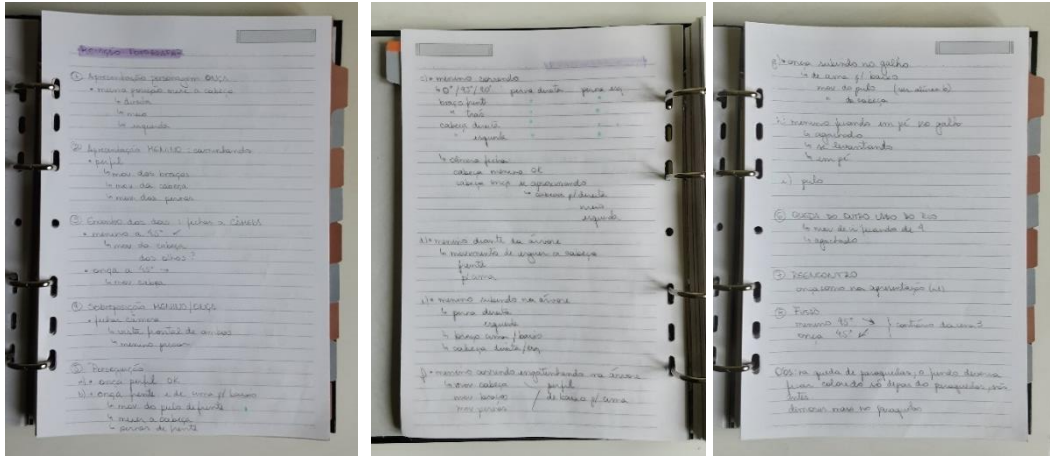 ① Apresentação personagem ONÇA
• mesma posição mexe a cabeça
↳ direita
↳ meio
↳ esquerda
② Apresentação MENINO: caminhando
• perfil
↳ mov. dos braços
↳ mov. da cabeça
↳ mov. das pernas
③ Encontro dos dois: fecha a câmera
• menino a 45° ↙
↳ mov. da cabeça
dos olhos?
• onça a 45°
↳ mov. cabeça
④ MENINO/ONÇA
• fecha câmera
↳ frontal de ambos
↳ menino
⑤ Perseguição
a) • onça perfil OK
b) • onça frente e de cima p/ baixo
↳ mov. do pulo de frente
↳ mexer a cabeça
↳ pernas de frente
c) • menino correndo
↳ 0°/45°/90° perna direita perna esq.
braço frente
" trás
cabeça direita
" esquerda
↳ câmera fecha
cabeça menino OK
cabeça onça se aproximando
↳ cabeça p/ direita
meio
esquerda
d) • menino diante da árvore
↳ movimento de erguer a cabeça
frente
p/ cima
e) • menino subindo na árvore
↳ perna direita
esquerda
↳ braço cima/baixo
↳ cabeça direita/esq.
f) • menino correndo engatinhando na árvore
↳ mov. cabeça perfil
mov. braços de baixo p/ cima
mov. pernas
g) • onça subindo no galho
↳ de cima p/ baixo
mov. do pulo
" da cabeça
h) • menino ficando em pé no galho
↳ agachado
↳ se levantando
↳ em pé
i) pulo
⑥ QUEDA DO OUTRO LADO DO RIO
↳ mov. de ir ficando de 4
↳ agachado
⑦ REENCONTRO
onça como na apresentação
⑧ FUSÃO
menino 45° ↘ contrário da cena 3
onça 45° ↙
Obs: na queda de paraquedas, o fundo deveria
ficar colorido só depois do paraquedas, não
antes
demorar mais no paraquedas